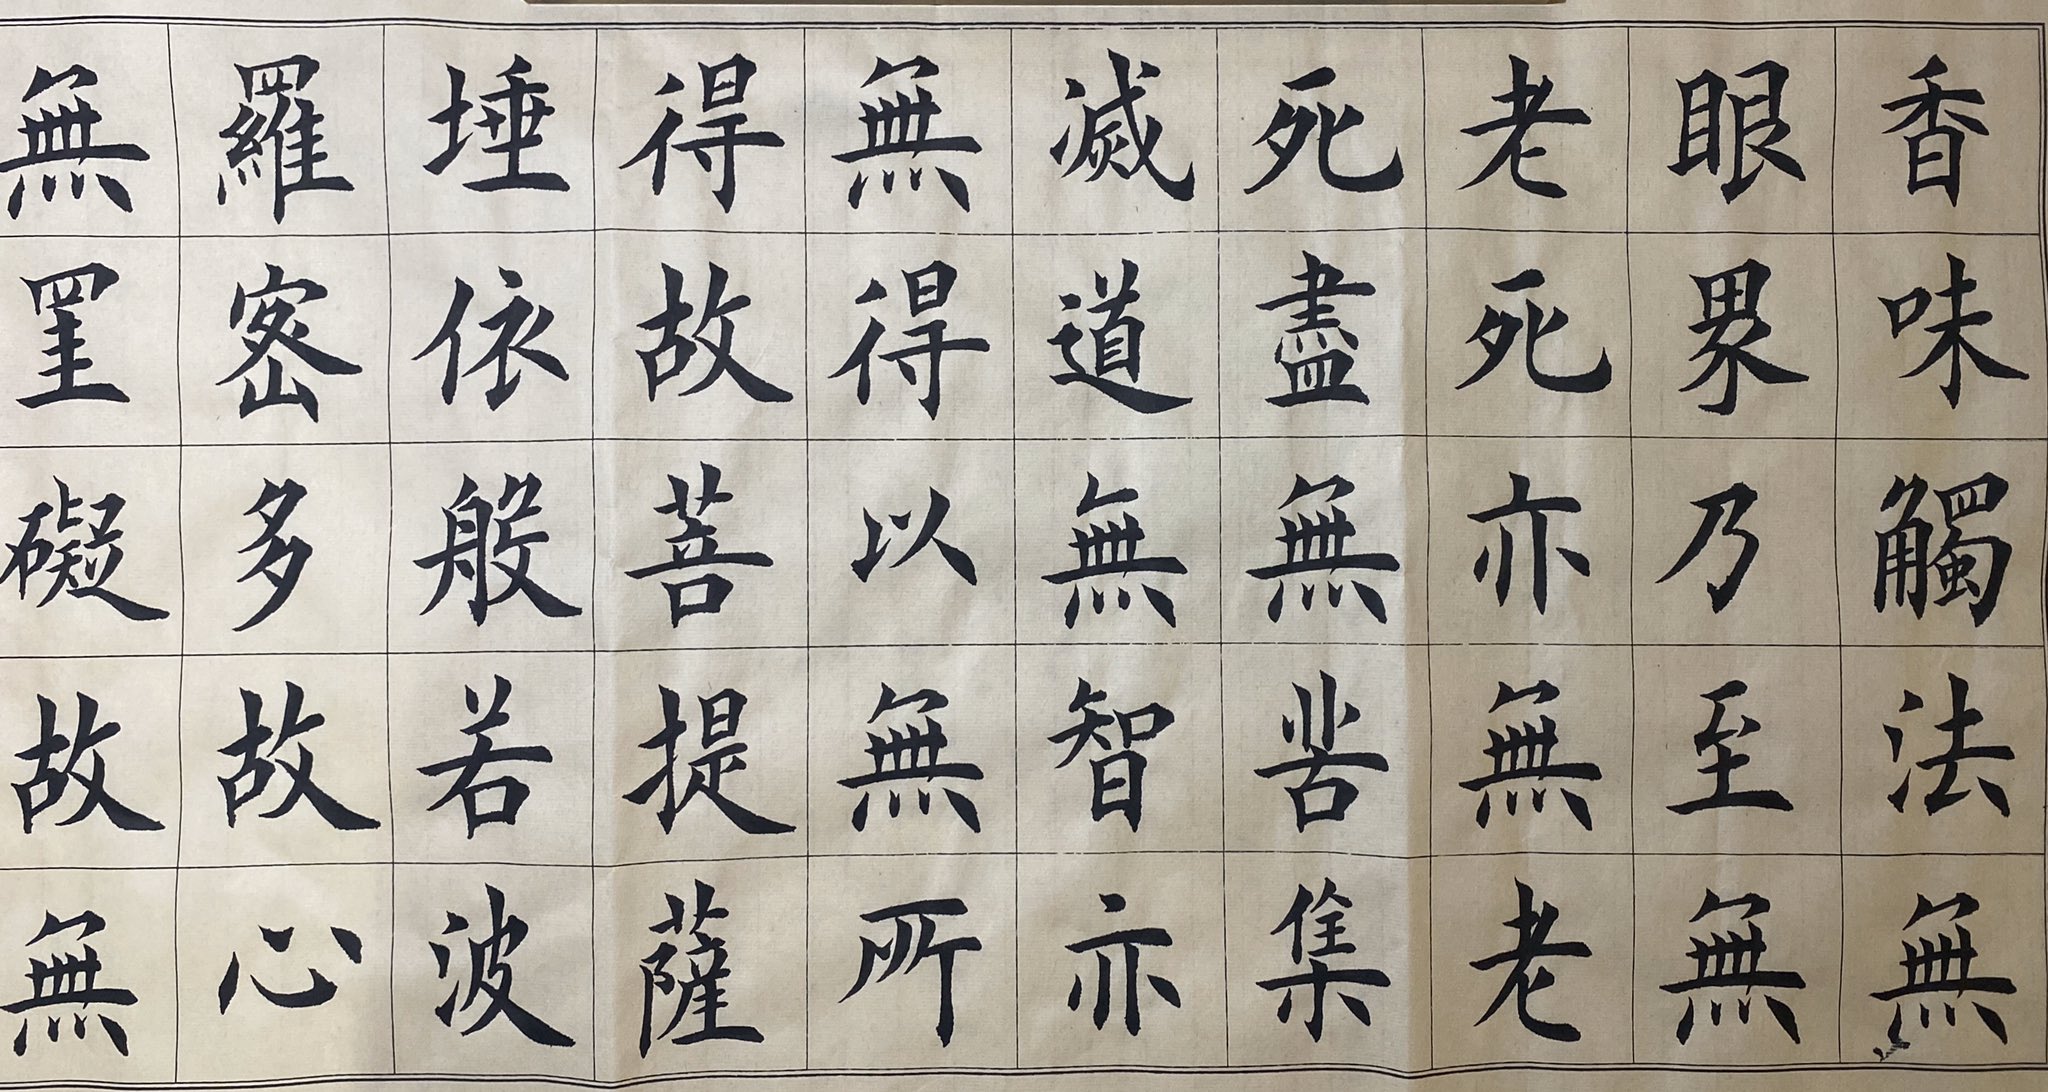 香味觸法無
眼界乃至無
老死亦無老
死盡無苦集
滅道無智亦
無得以無所
得故菩提薩
埵依般若波
羅蜜多故心
無罣礙故無